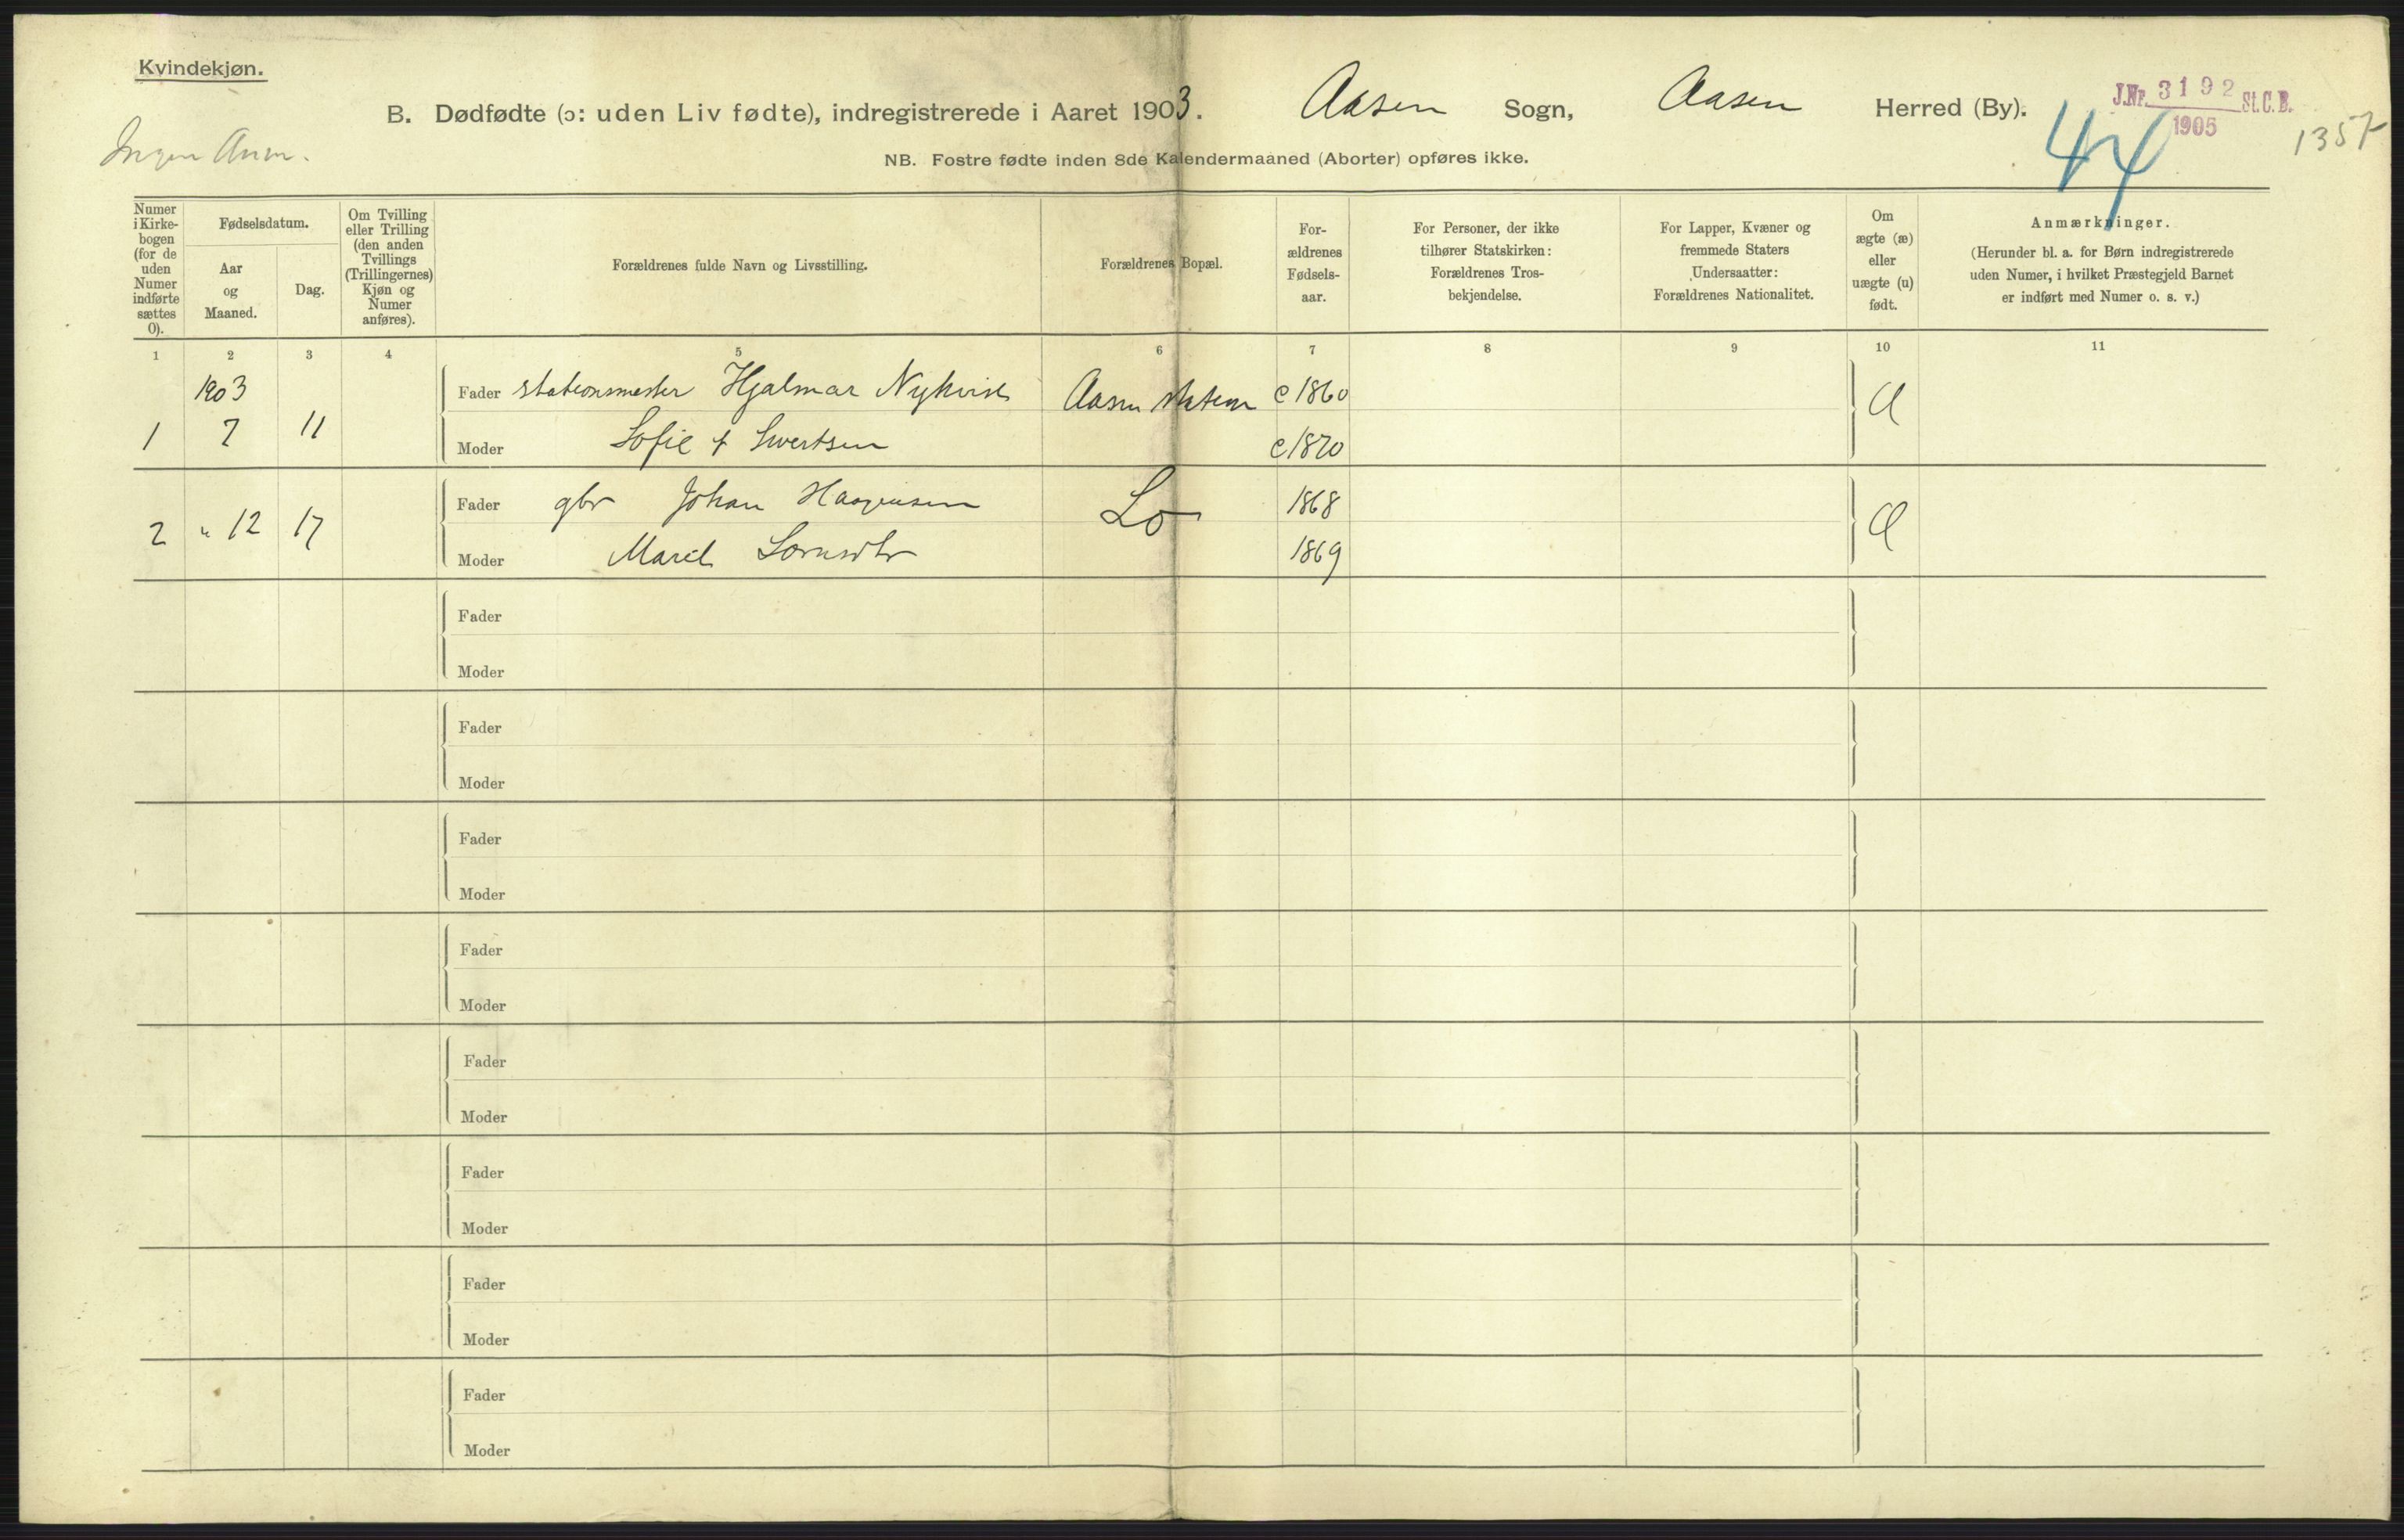 Kvindekjøn.
B. Dødfødte (ɔ: uden Liv fødte), indregistrerede i Aaret 1903. Aasen Sogn, Aasen Herred (By).
J.Nr. 3192 St.C.B.
1905
44
1357
Ingen Anm.
NB. Fostre fødte inden 8de Kalendermaaned (Aborter) opføres ikke.
Numer
i Kirke-
bogen
(for de
uden
Numer
indførte
sættes
0).
Fødselsdatum.
Aar
og
Maaned.
Dag.
Om Tvilling
eller Trilling
(den anden
Tvillings
(Trillingernes)
Kjøn og
Numer
anføres).
Forældrenes fulde Navn og Livsstilling.
Forældrenes Bopæl.
For-
ældrenes
Fødsels-
aar.
For Personer, der ikke
tilhører Statskirken:
Forældrenes Tros-
bekjendelse.
For Lapper, Kvæner og
fremmede Staters
Undersaatter:
Forældrenes Nationalitet.
Om
ægte (æ)
eller
uægte (u)
født.
Anmærkninger.
(Herunder bl. a. for Børn indregistrerede
uden Numer, i hvilket Præstegjeld Barnet
er indført med Numer o. s. v.)
1 2 3 4 5 6 7 8 9 10 11
1903
Fader stationsmester Hjalmar Nykvist Aasen station c 1860
1 7 11
Moder Sofie f Sivertsen c 1870
Fader gbr Johan Haagensen Lo 1868
2 " 12 17
Moder Maret 1869
Fader
Moder
Fader
Moder
Fader
Moder
Fader
Moder
Fader
Moder
Fader
Moder
Fader
Moder
Fader
Moder